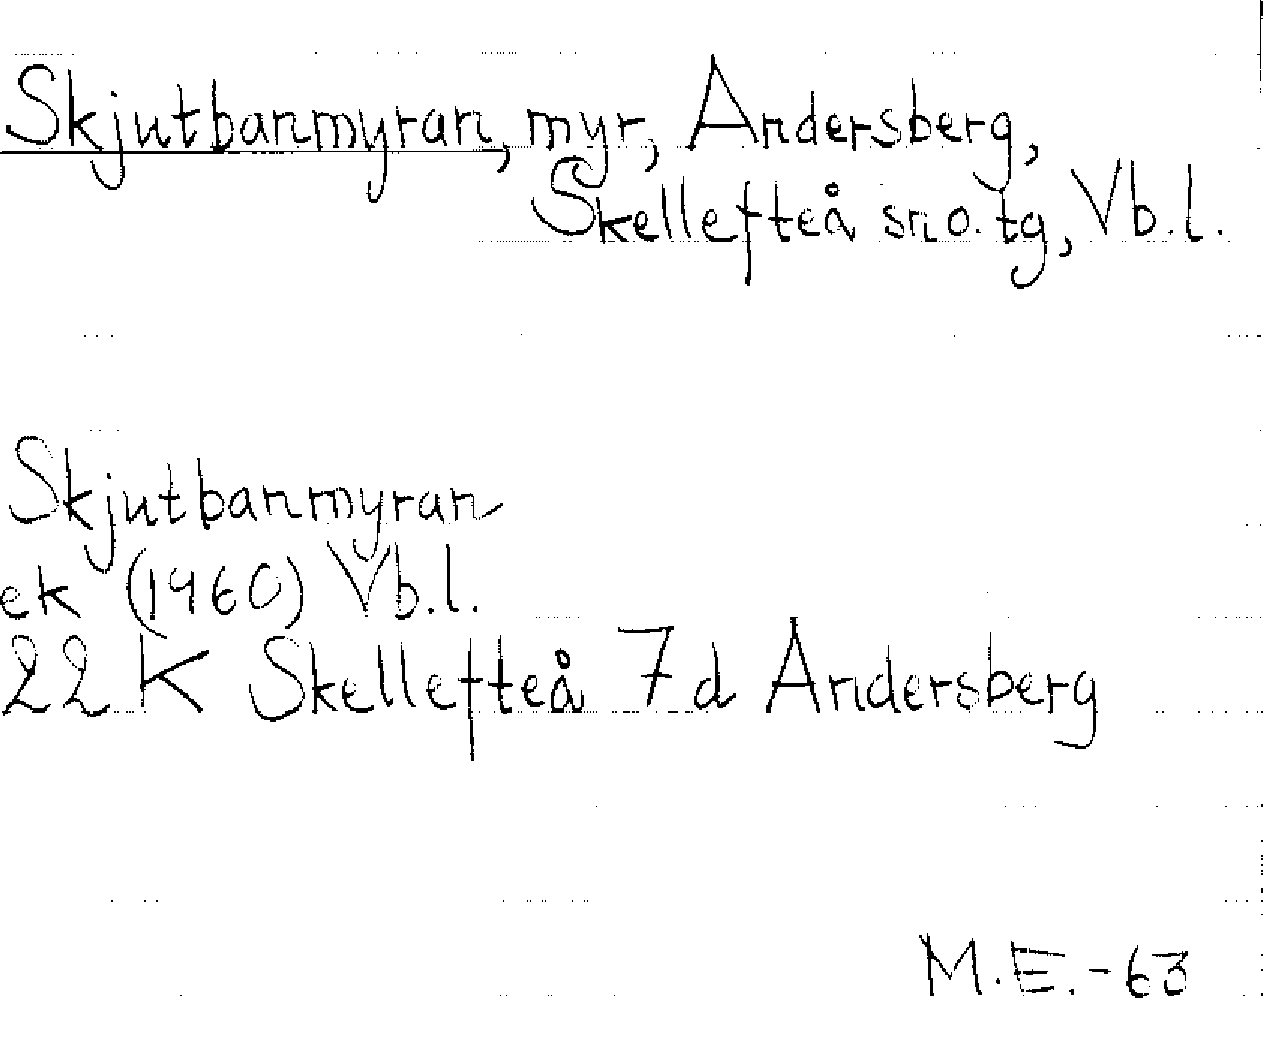 Skjutbanmyran, myr, Andersberg,
Skellefteå sn o. tg, Vb. l.
Skjutbanmyran
ek (1960) Vb. l.
22 K Skellefteå 7d Andersberg
M.E.-63